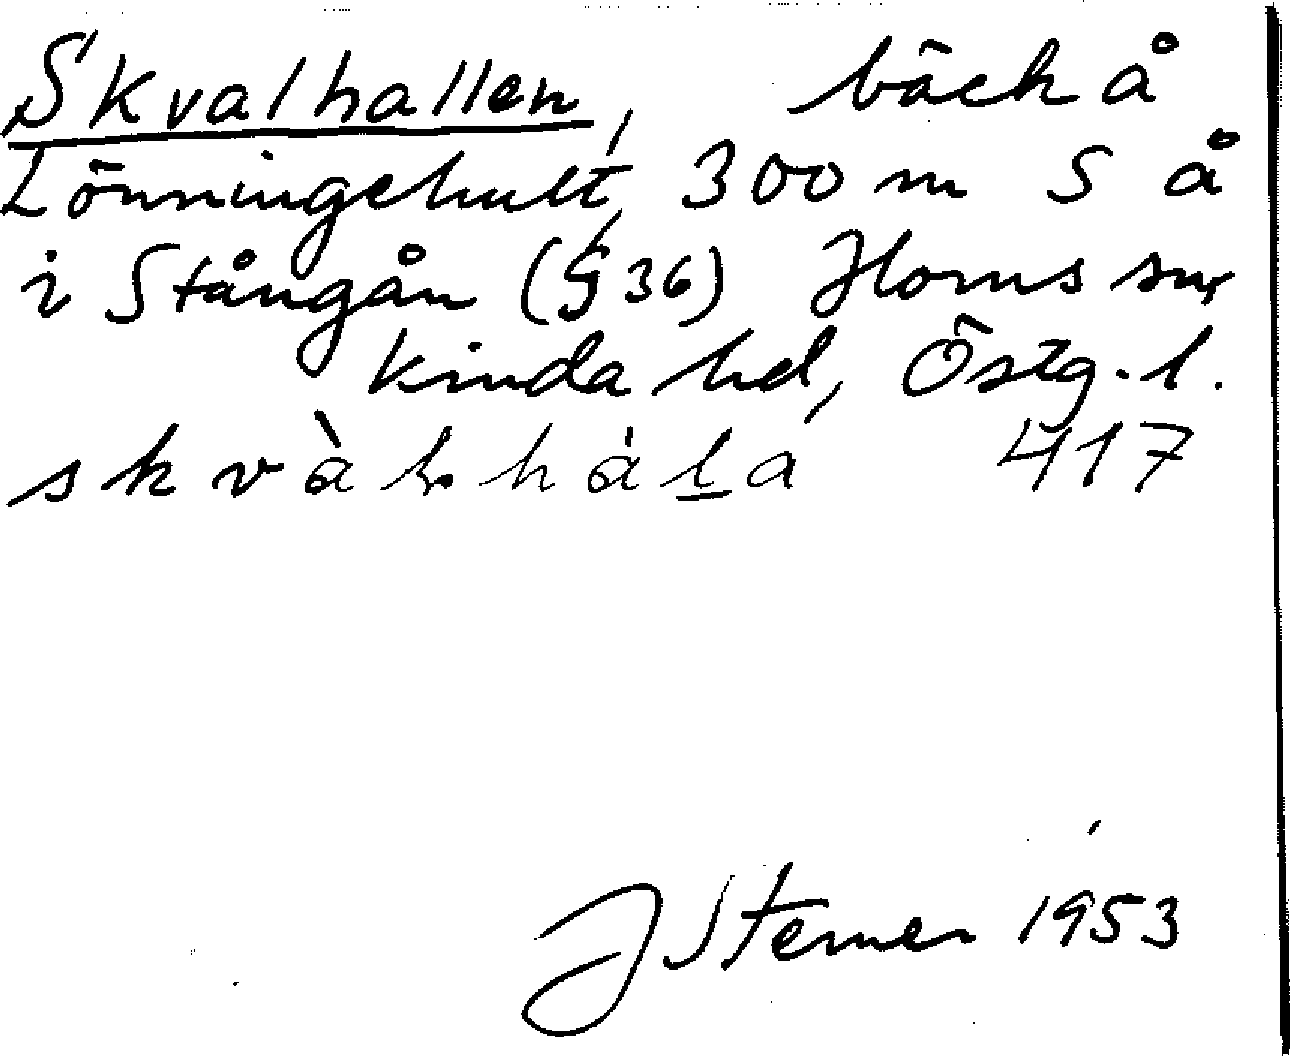 Skvalhallen, bäck å
Lönningehult, 300 m S å
i Stångån (§ 36) Horns sn,
Kinda hd, Östg. l.
skvàlhála 417
J Sterner 1953